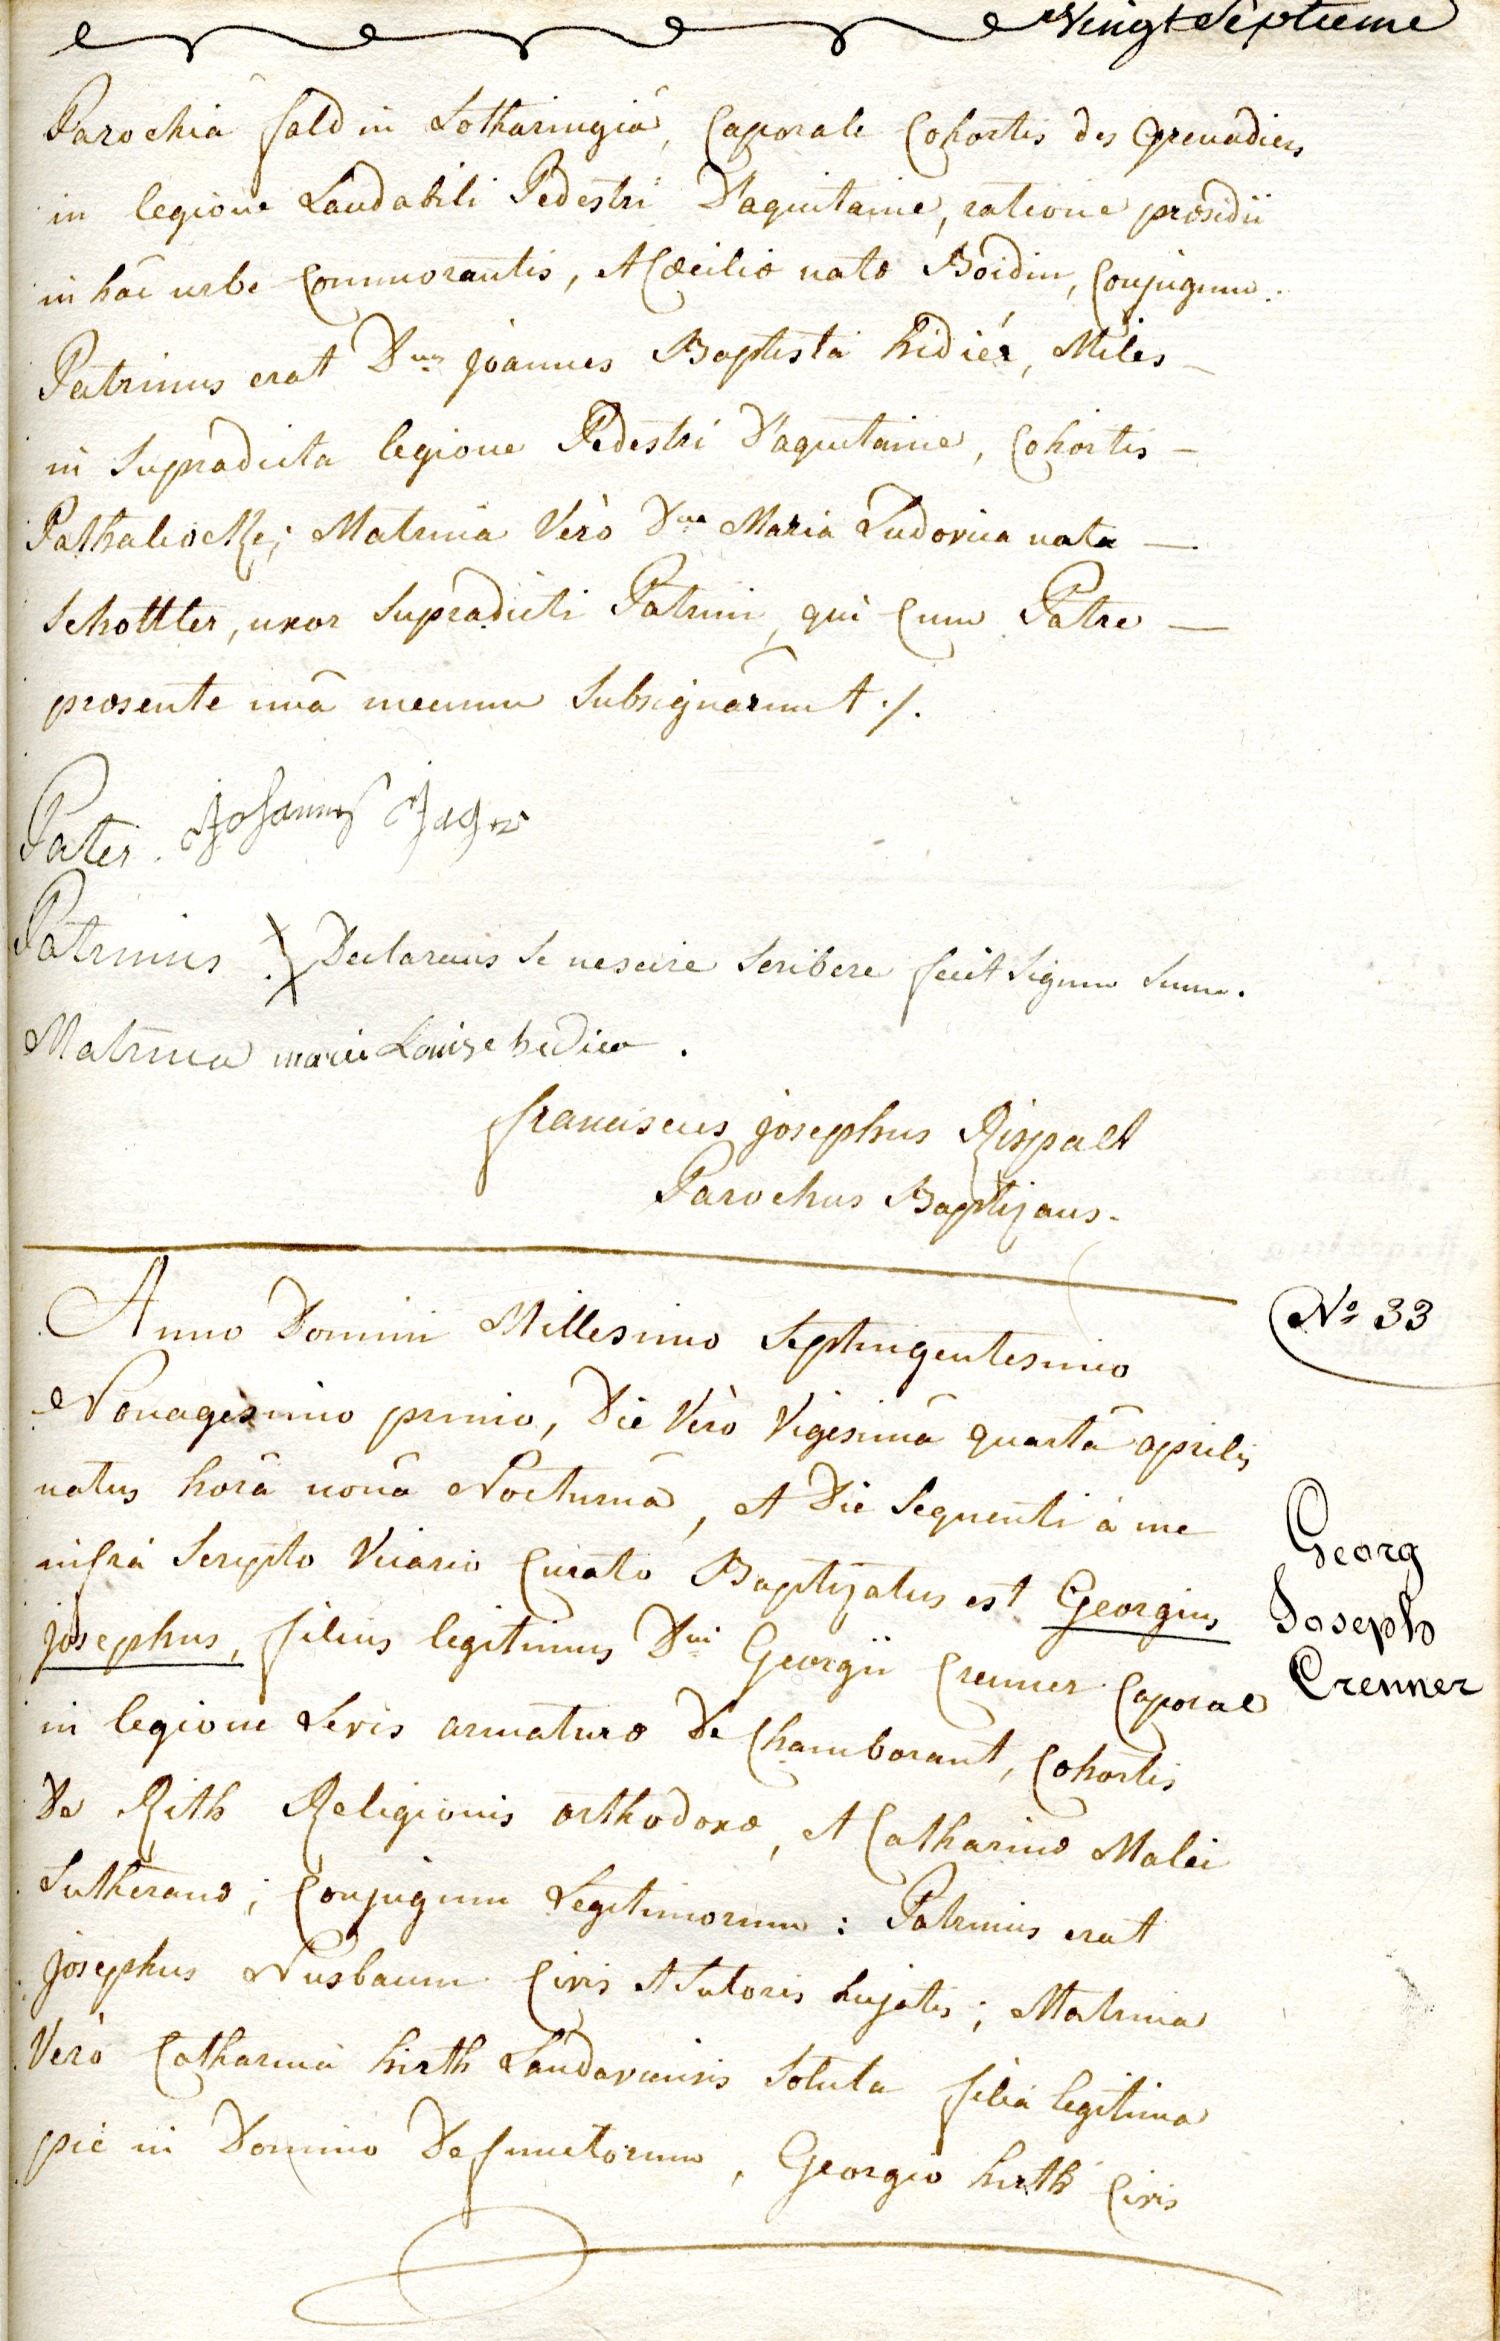 Vingt Septieme
Parochiâ fald in Lotharingiâ, Caporale Cohortis des Grenadiers
in legione Laudabili Pedestri D'aquitaine, ratione præsidii
in hâc urbe Commorantis, et Cæciliæ natæ Boidin, Conjugum.
Patrinus erat Dnus joannes Baptista hidier, Miles –
in Supradicta legione Pedestri D'aquitaine, Cohortis –
Matrina Verò Dna Maria Ludovica nata —
Schottler, uxor Supradicti Patrini, qui Cum Patre —
præsente unâ mecum Subsignârunt ./.
Pater. Johannes Jager
Patrinus X Declarans Se nescire Scribere fecit Signum Suum.
Matrina marie Louise hedier.
franciscus josephus Rispalt
Parochus Baptizans.
Nº 33
Anno Domini Millesimo Septingentesimo
Nonagesimo primo, Die Verò Vigesimâ quartâ aprilis
natus horâ nonâ Nocturnâ, et Die Sequenti à me
infrà Scripto Vicario Curato Baptizatus est Georgius
josephus, filius legitimus Dni Georgii Crenner Caporal
in legione Levis armaturæ De Chamborant, Cohortis
De Rith Religionis orthodoxæ, et Catharinæ Malei
Lutheranæ; Conjugum Legitimorum: Patrinus erat
josephus Nusbaum Civis et Sutoris hujatis; Matrina
Verò Catharina hirth Landaviensis Soluta filia legitima
piè in Domino Defunctorum, Georgio hirth Civis
Georg
Joseph
Crenner